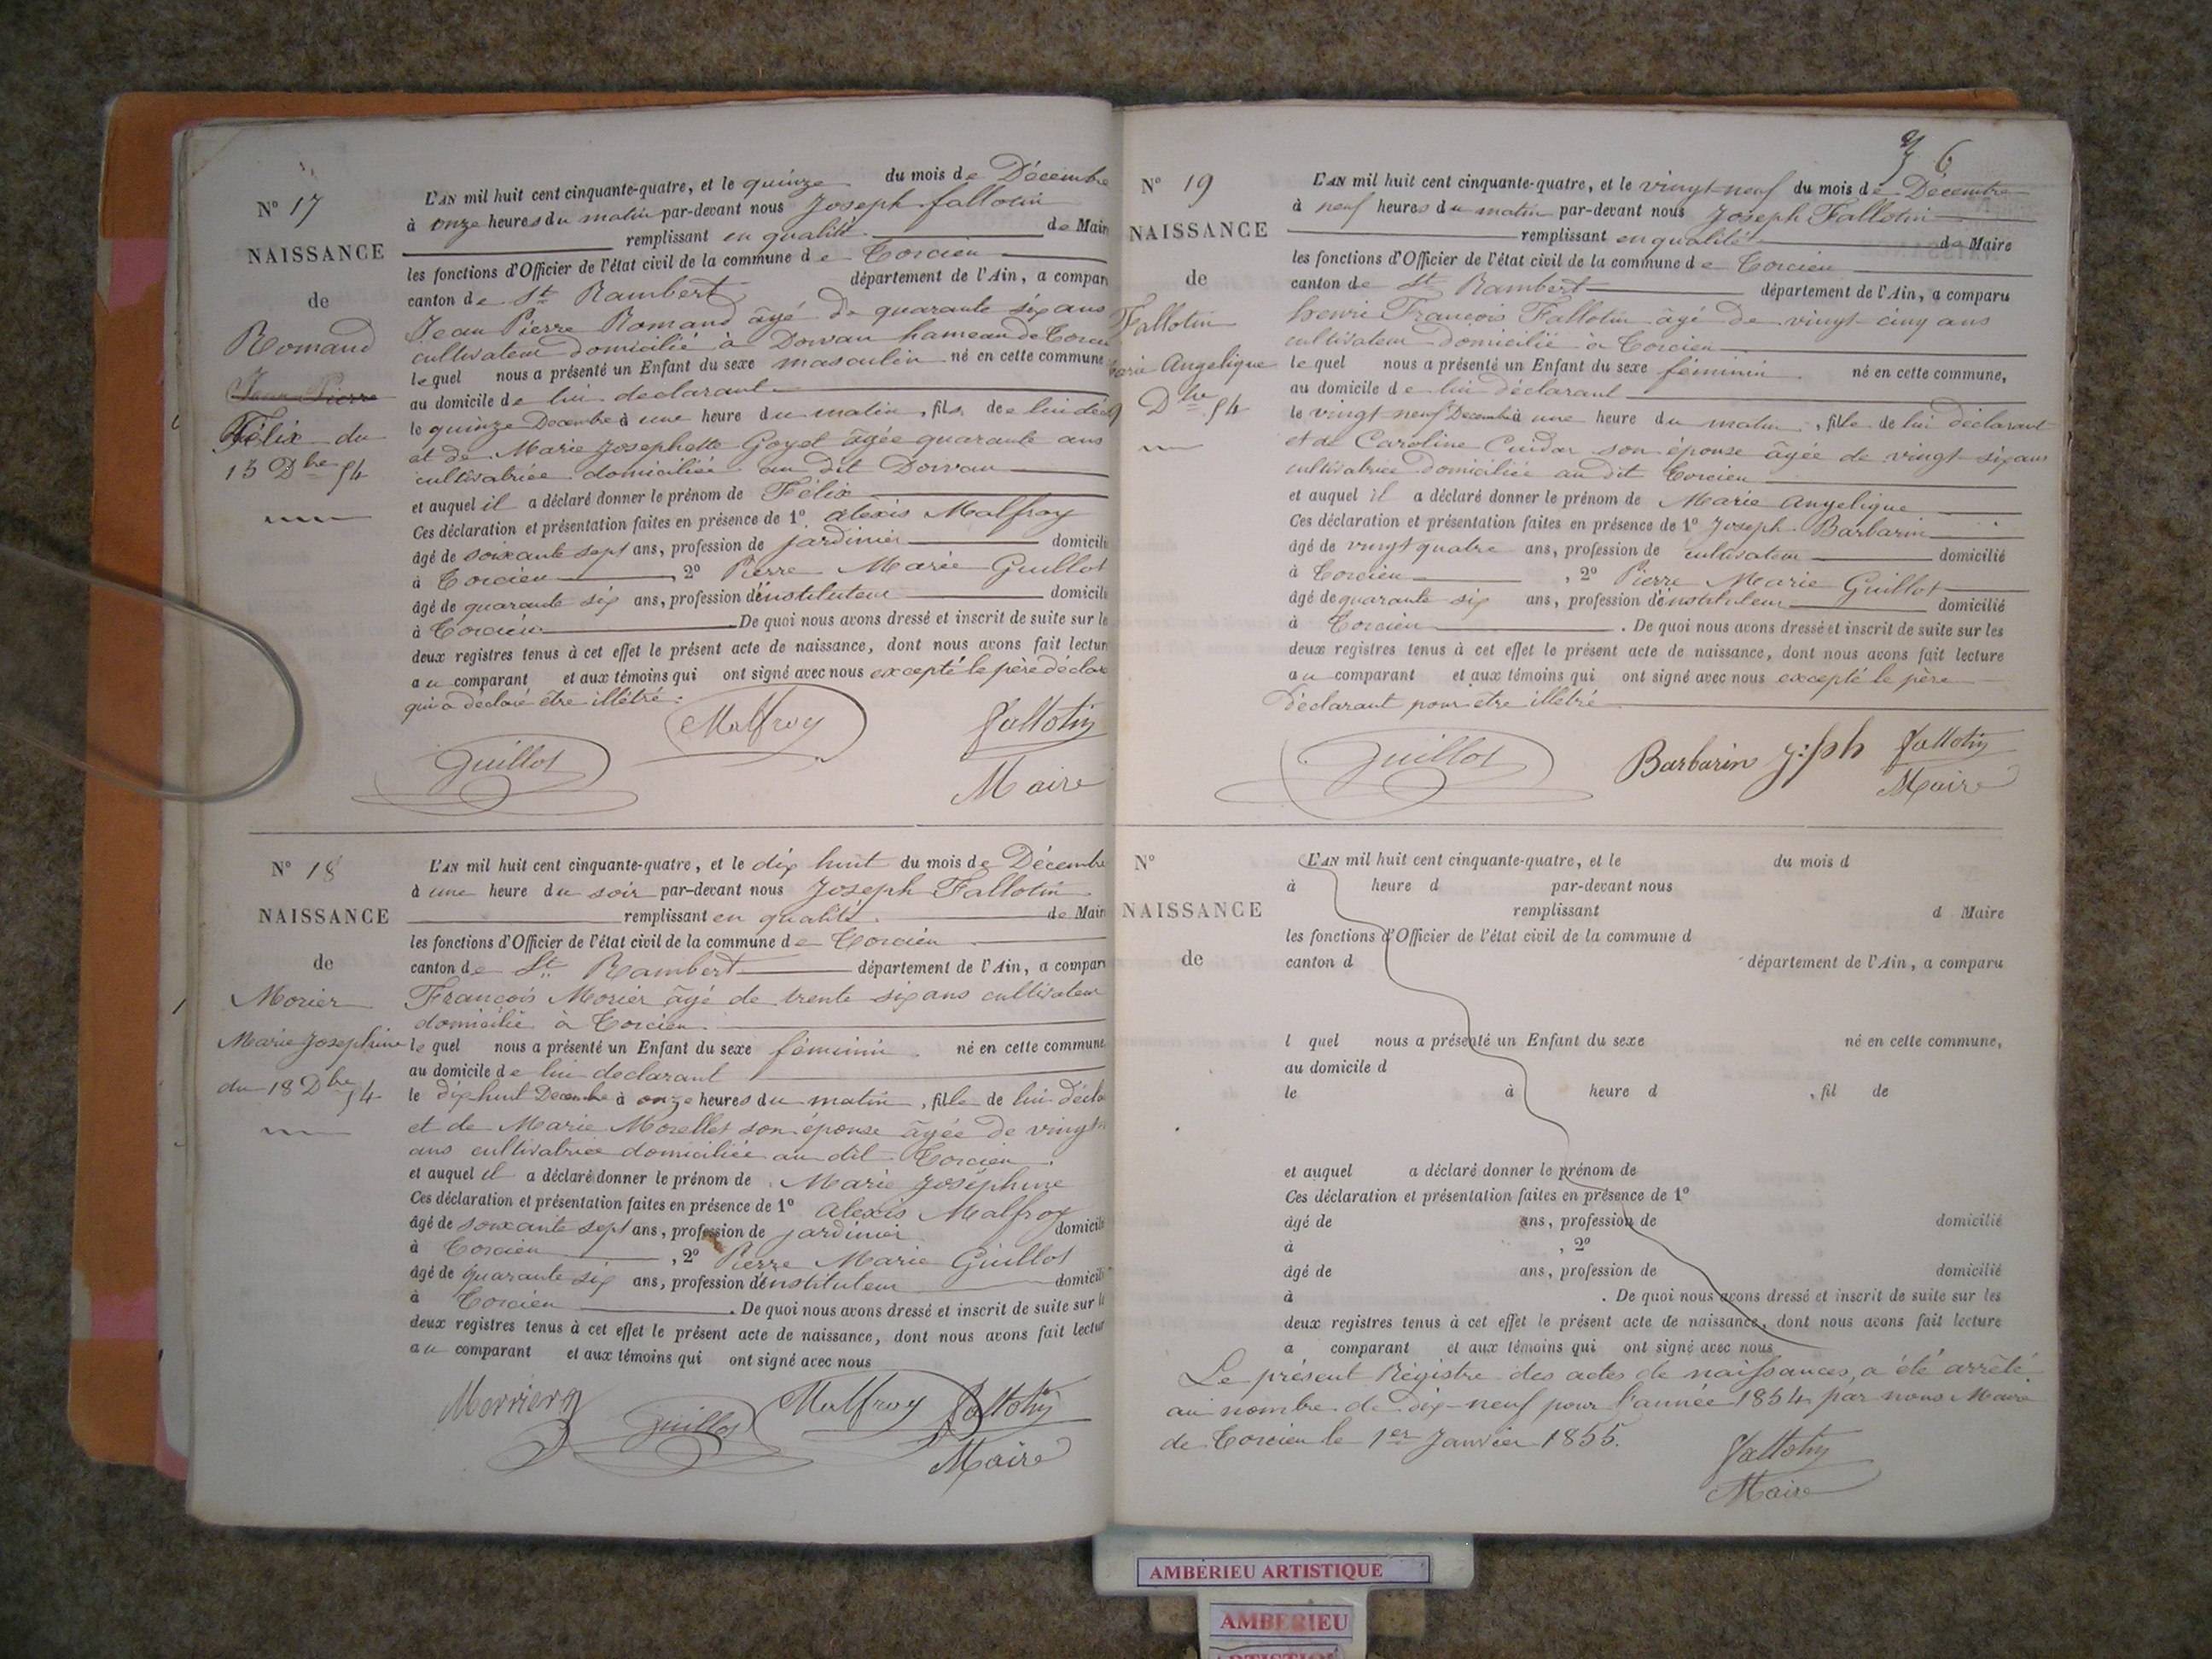 N° 17
NAISSANCE
de
Romand
Jean Pierre
Félix du
15 Dbre 54
L'AN mil huit cent cinquante-quatre, et le quinze du mois de Décembre
à onze heures du matin par-devant nous Joseph fallotin
remplissant en qualité de Mair
les fonctions d'Officier de l'état civil de la commune de Torcieu
canton de St Rambert département de l'Ain, a compar
Jean Pierre Romand âgé de quarante six ans
cultivateur domicilié à Dorvan hameau de Torcieu
lequel nous a présenté un Enfant du sexe masculin né en cette commune
au domicile de lui declarant
le quinze Decembre à une heure du matin, fils de lui décl
et de Marie Josephette Goyet âgée quarante ans
cultivatrice domiciliée au dit Dorvan
et auquel il a déclaré donner le prénom de Félix
Ces déclaration et présentation faites en présence de 1° alexis Malfroy
âgé de soixante sept ans, profession de jardinier domicili
à Torcieu, 2° Pierre Marie Guillot
âgé de quarante six ans, profession d'instituteur domicili
à Torcieu. De quoi nous avons dressé et inscrit de suite sur le
deux registres tenus à cet effet le présent acte de naissance, dont nous avons fait lectur
au comparant et aux témoins qui ont signé avec nous excepté le père déclara
qui a déclaré être illétré.
Malfroy
Fallotin
Guillot
Maire
N° 18
NAISSANCE
de
Morier
Marie Josephine
du 18 Dbre 54
L'AN mil huit cent cinquante-quatre, et le dix huit du mois de Décembre
à une heure du soir par-devant nous Joseph Fallotin
remplissant en qualité de Mair
les fonctions d'Officier de l'état civil de la commune de Torcieu
canton de St Rambert département de l'Ain, a compar
François Morier âgé de trente six ans cultivateur
domicilié à Torcieu
lequel nous a présenté un Enfant du sexe féminin né en cette commune
au domicile de lui declarant
le dix huit Decembre à onze heures du matin, fille de lui décla
et de Marie Morellet son épouse âgée de vingt
ans cultivatrice domiciliée au dit Torcieu.
et auquel il a déclaré donner le prénom de Marie Joséphine
Ces déclaration et présentation faites en présence de 1° alexis Malfroy
âgé de soixante sept ans, profession de jardinier domicili
à Torcieu, 2° Pierre Marie Guillot
âgé de quarante six ans, profession d'instituteur domicili
à Torcieu. De quoi nous avons dressé et inscrit de suite sur le
deux registres tenus à cet effet le présent acte de naissance, dont nous avons fait lectur
au comparant et aux témoins qui ont signé avec nous
Morrier
Guillot
Malfroy
Fallotin
Maire
6
N° 19
NAISSANCE
de
Fallotin
Marie Angelique
Dbre 54
L'AN mil huit cent cinquante-quatre, et le vingt-neuf du mois de Décembre
à neuf heures du matin par-devant nous Joseph Fallotin
remplissant en qualité de Maire
les fonctions d'Officier de l'état civil de la commune de Torcieu
canton de St Rambert département de l'Ain, a comparu
henri François Fallotin âgé de vingt-cinq ans
cultivateur domicilié a Torcieu
lequel nous a présenté un Enfant du sexe féminin né en cette commune,
au domicile de lui déclarant
le vingt neuf Decembre à une heure du matin, fille de lui déclarant
et de Caroline Cuidar son épouse âgée de vingt-six ans
cultivatrice domiciliée au dit Torcieu
et auquel il a déclaré donner le prénom de Marie Angelique
Ces déclaration et présentation faites en présence de 1° Joseph Barbarin
âgé de vingt quatre ans, profession de cultivateur domicilié
à Torcieu, 2° Pierre Marie Guillot
âgé de quarante six ans, profession d'instituteur domicilié
à Torcieu. De quoi nous avons dressé et inscrit de suite sur les
deux registres tenus à cet effet le présent acte de naissance, dont nous avons fait lecture
au comparant et aux témoins qui ont signé avec nous excepté le père
déclarant pour être illétré
Guillot
Barbarin
Fallotin
Maire
N°
NAISSANCE
de
L'AN mil huit cent cinquante-quatre, et le du mois d
à heure d par-devant nous
remplissant d Maire
les fonctions d'Officier de l'état civil de la commune d
canton d département de l'Ain, a comparu
l quel nous a présenté un Enfant du sexe né en cette commune,
au domicile d
le à heure d , fil de
et auquel a déclaré donner le prénom de
Ces déclaration et présentation faites en présence de 1°
âgé de ans, profession de domicilié
à , 2°
âgé de ans, profession de domicilié
à . De quoi nous avons dressé et inscrit de suite sur les
deux registres tenus à cet effet le présent acte de naissance, dont nous avons fait lecture
a comparant et aux témoins qui ont signé avec nous
Le présent Régistre des actes de naissances, a été arrêté
au nombre de Dix-neuf pour l'année 1854 par nous Maire
de Torcieu le 1er Janvier 1855.
Fallotin
Maire
AMBÉRIEU ARTISTIQUE
AMBERIEU
ARTISTIQUE